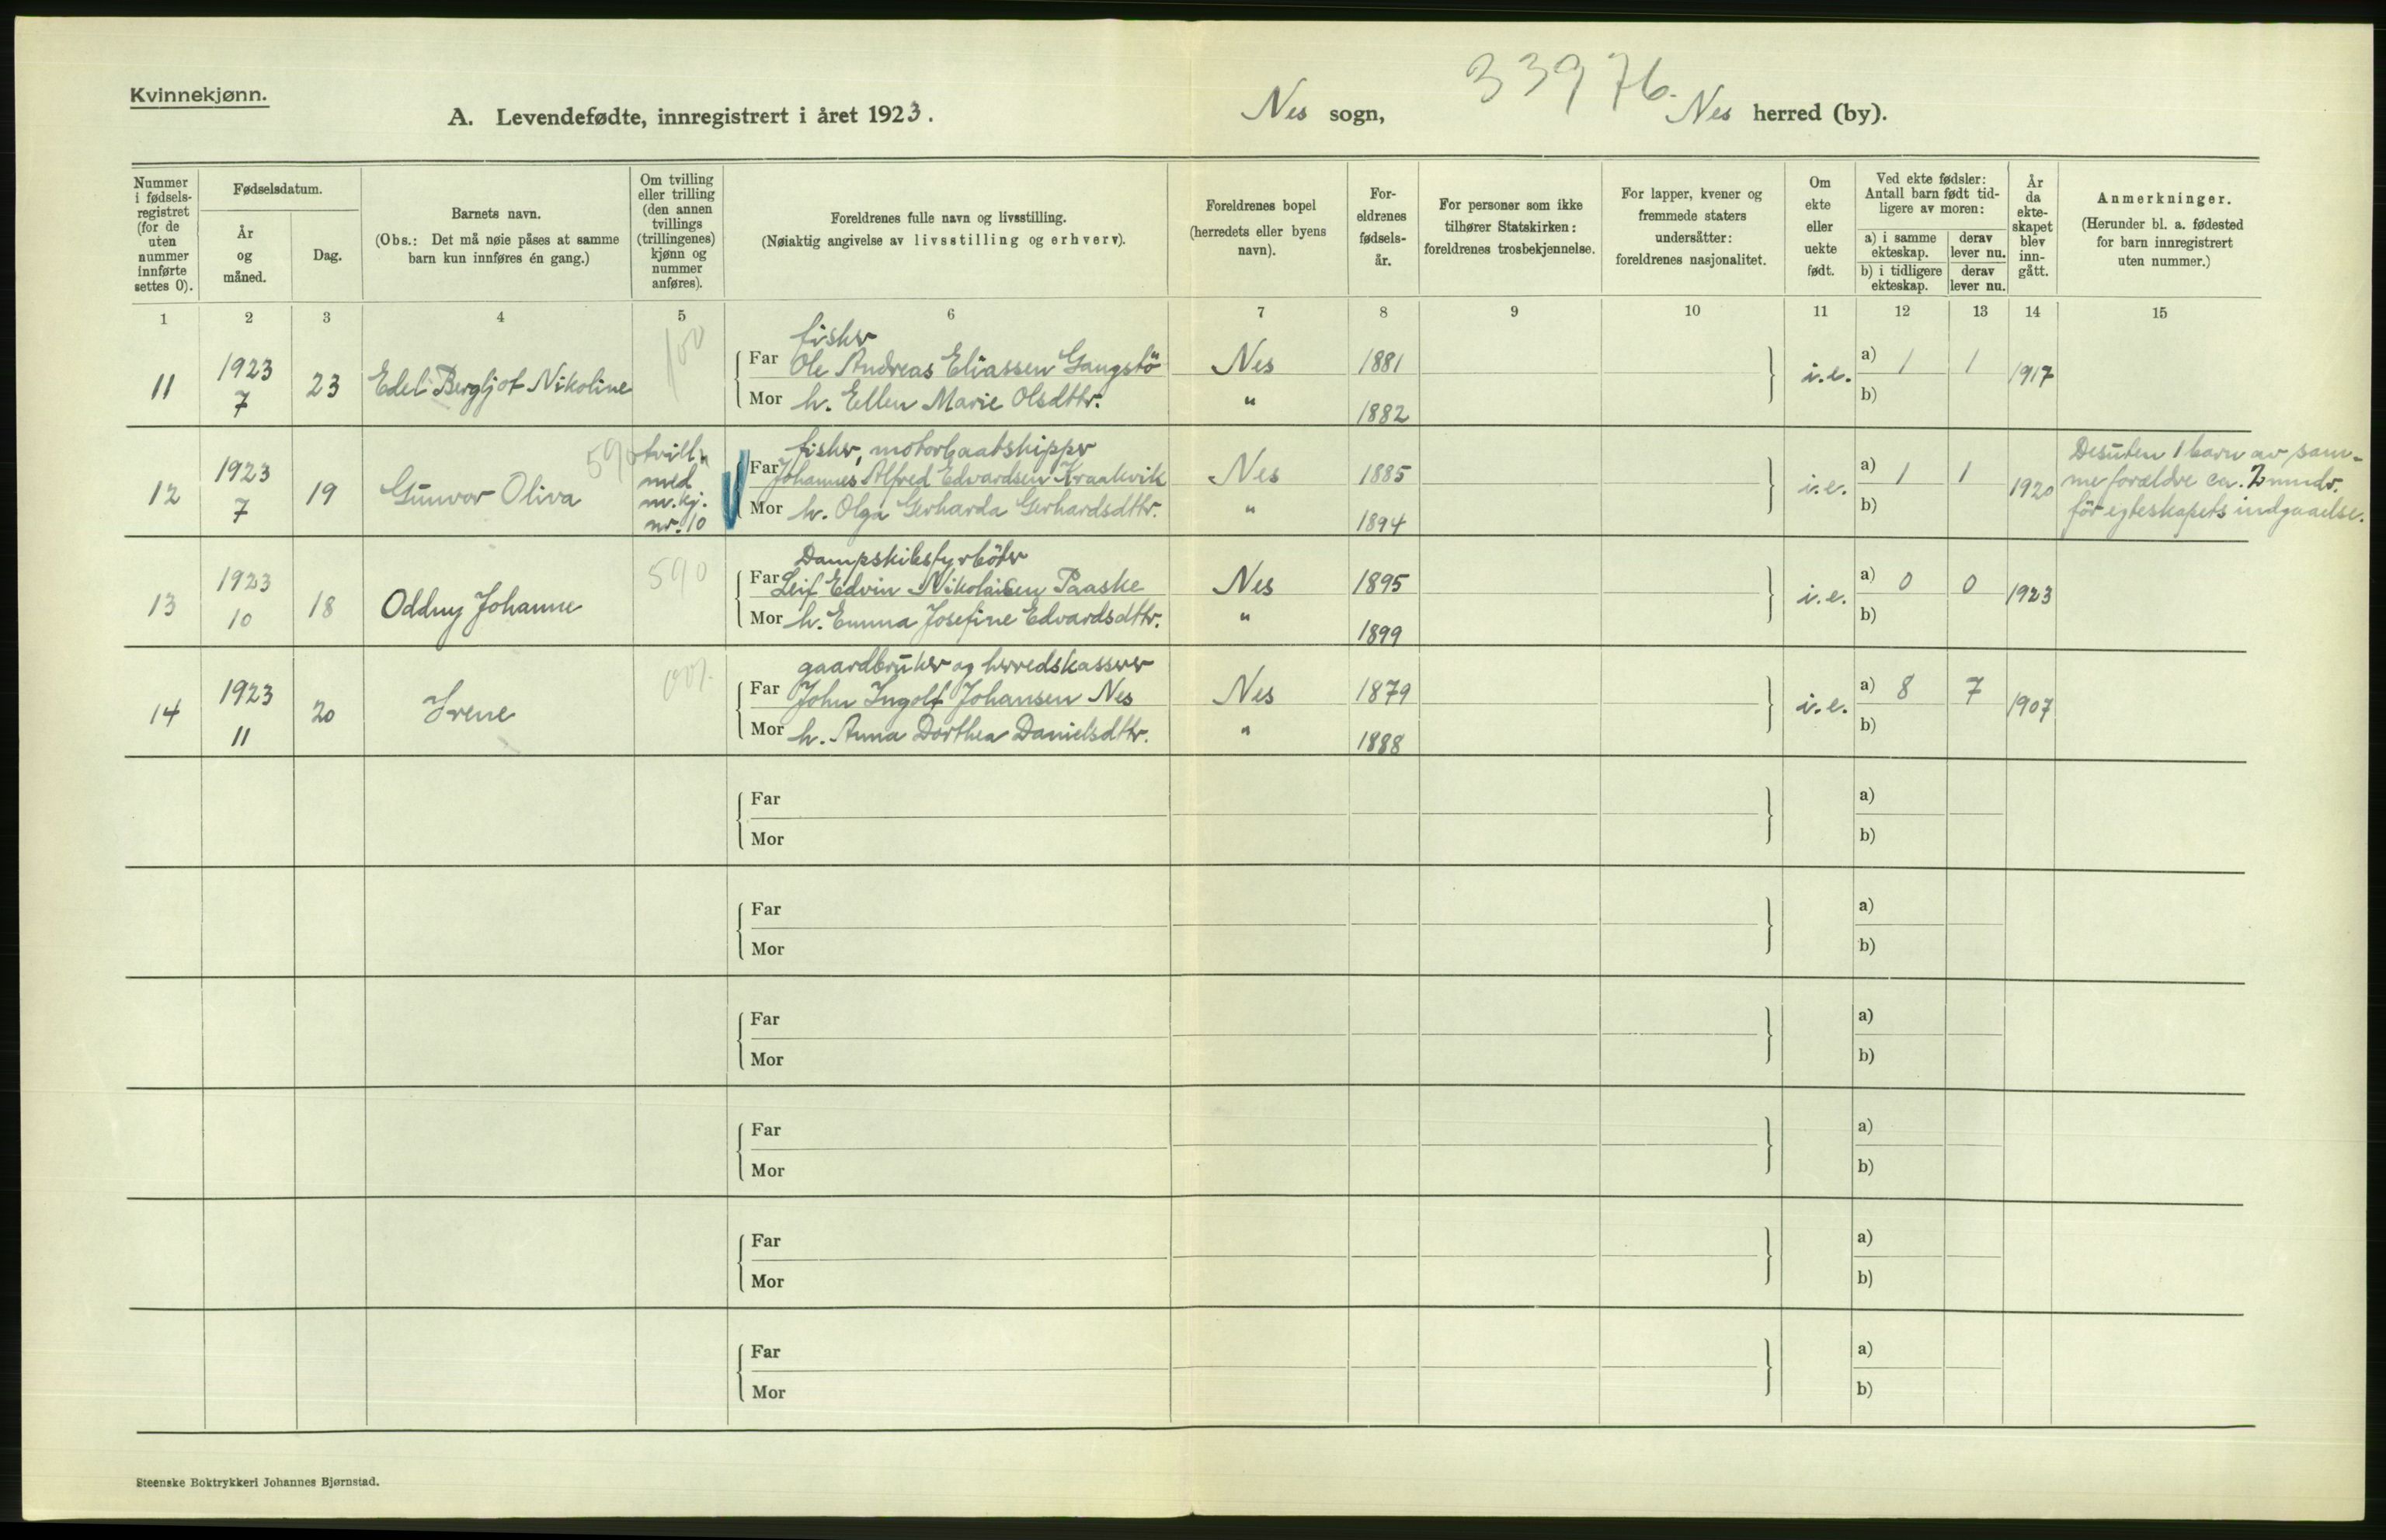 Kvinnekjønn.
A. Levendefødte, innregistrert i året 1923.
Nes sogn,
33976.
Nes herred (by).
Nummer i fødselsregistret (for de uten nummer innførte settes 0).
Fødselsdatum.
År og måned.
Dag.
Barnets navn.
(Obs.: Det må nøie påses at samme barn kun innføres én gang.)
Om tvilling eller trilling (den annen tvillings (trillingenes) kjønn og nummer anføres).
Foreldrenes fulle navn og livsstilling.
(Nøiaktig angivelse av livsstilling og erhverv).
Foreldrenes bopel (herredets eller byens navn).
Foreldrenes fødselsår.
For personer som ikke tilhører Statskirken: foreldrenes trosbekjennelse.
For lapper, kvener og fremmede staters undersåtter: foreldrenes nasjonalitet.
Om ekte eller uekte født.
Ved ekte fødsler: Antall barn født tidligere av moren:
a) i samme ekteskap. derav lever nu.
b) i tidligere ekteskap. derav lever nu.
År da ekteskapet blev inngått.
Anmerkninger.
(Herunder bl. a. fødested for barn innregistrert uten nummer.)
1 2 3 4 5 6 7 8 9 10 11 12 13 14 15
100 fisker
11 1923 7 23 Edel Bergljot Nikoline Far Ole Andreas Eliassen Gangstö Nes 1881 i.e. a) 1 1 1917
Mor h. Ellen Marie Olsdttr. " 1882 b)
590 tvill. med m.kj. nr. 10 fisker, motorbaatskipper
12 1923 7 19 Gunvor Oliva Far Johannes Alfred Edvardsen Kraakvik Nes 1885 i.e. a) 1 1 1920
Mor h. Olga Gerharda Gerhardsdttr. " 1894 b)
Desuten 1 barn av sam-
me forældre ca. 2 mndr.
för egteskapets indgaaelse.
590 Dampskibsfyrböter
13 1923 10 18 Oddny Johanne Far Leif Edvin Nikolaisen Paaske Nes 1895 i.e. a) 0 0 1923
Mor h. Emma Josefine Edvardsdttr. " 1899 b)
001. gaardbruker og herredskasserer
14 1923 11 20 Irene Far John Ingolf Johansen Nes Nes 1879 i.e. a) 8 7 1907
Mor h. Anna Dorthea Danielsdttr. " 1888 b)
Far a)
Mor b)
Far a)
Mor b)
Far a)
Mor b)
Far a)
Mor b)
Far a)
Mor b)
Far a)
Mor b)
Steenske Boktrykkeri Johannes Bjørnstad.